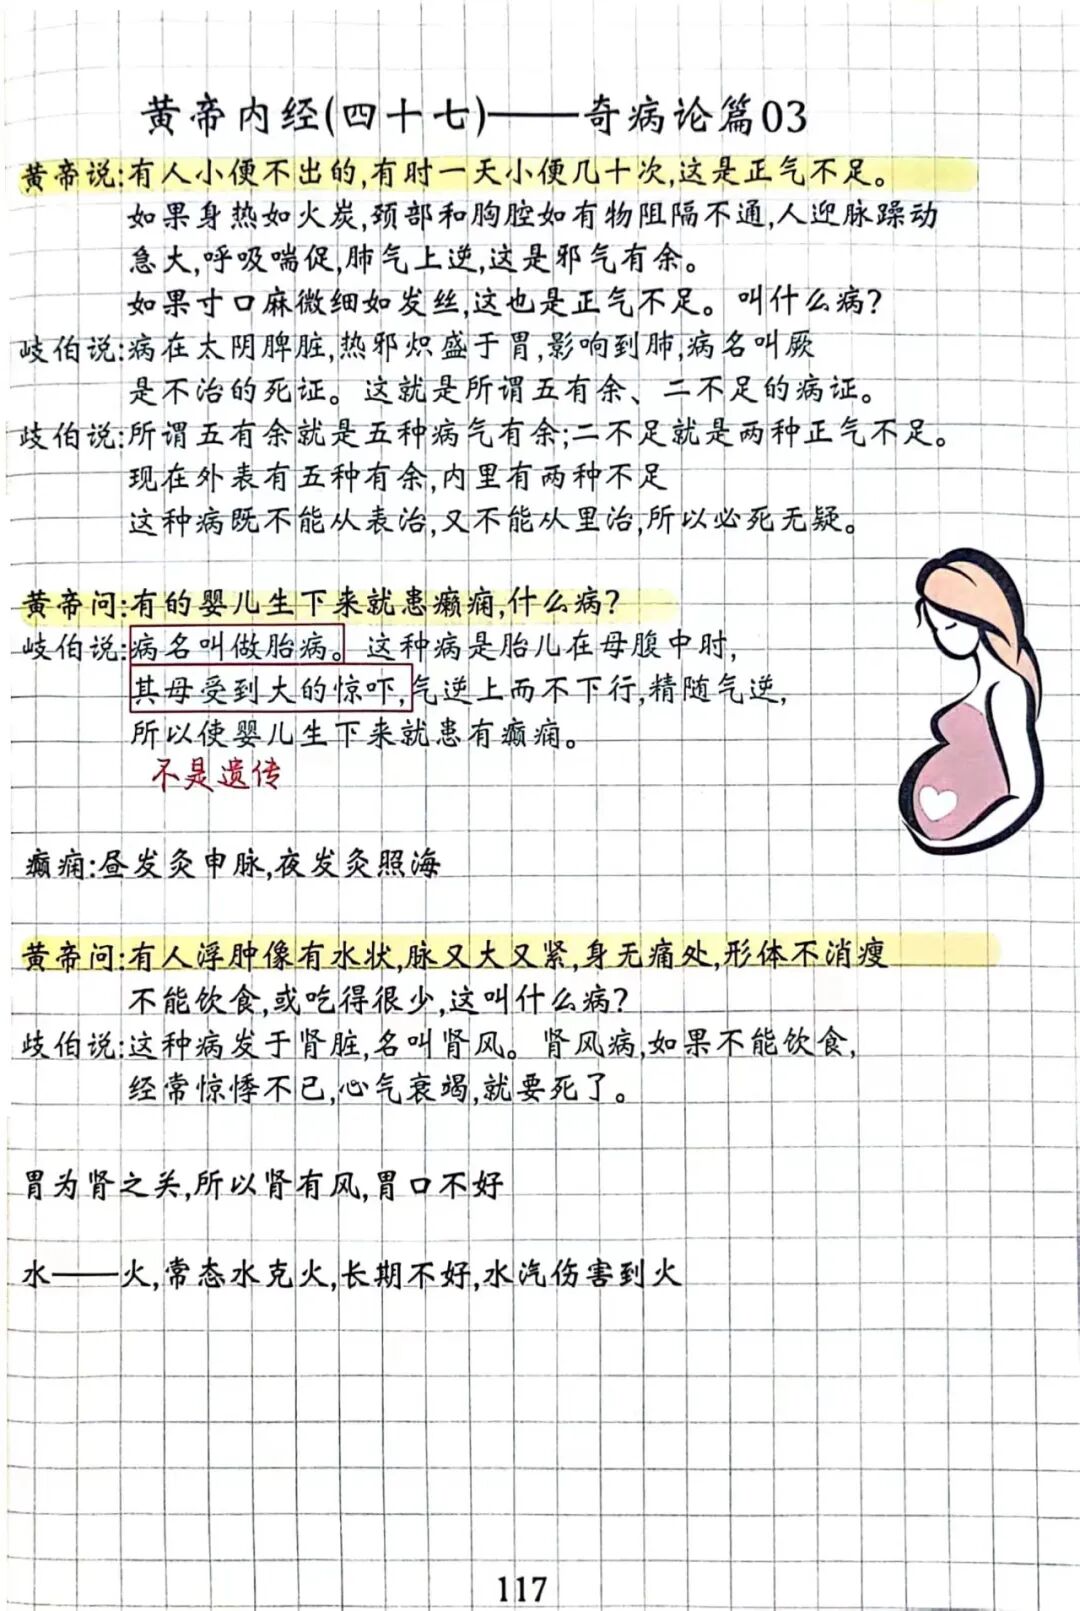 黄帝内经(四十七)——奇病论篇03
黄帝说:有人小便不出的,有时一天小便几十次,这是正气不足。
如果身热如火炭,颈部和胸腔如有物阻隔不通,人迎脉躁动
急大,呼吸喘促,肺气上逆,这是邪气有余。
如果寸口麻微细如发丝,这也是正气不足。叫什么病?
岐伯说:病在太阴脾脏,热邪炽盛于胃,影响到肺,病名叫厥
是不治的死证。这就是所谓五有余、二不足的病证。
歧伯说:所谓五有余就是五种病气有余;二不足就是两种正气不足。
现在外表有五种有余,内里有两种不足
这种病既不能从表治,又不能从里治,所以必死无疑。
黄帝问:有的婴儿生下来就患癫痫,什么病?
岐伯说:病名叫做胎病。这种病是胎儿在母腹中时,
其母受到大的惊吓,气逆上而不下行,精随气逆,
所以使婴儿生下来就患有癫痫。
不是遗传
癫痫:昼发灸申脉,夜发灸照海
黄帝问:有人浮肿像有水状,脉又大又紧,身无痛处,形体不消瘦
不能饮食,或吃得很少,这叫什么病?
歧伯说:这种病发于肾脏,名叫肾风。肾风病,如果不能饮食,
经常惊悸不已,心气衰竭,就要死了。
胃为肾之关,所以肾有风,胃口不好
水——火,常态水克火,长期不好,水汽伤害到火
117